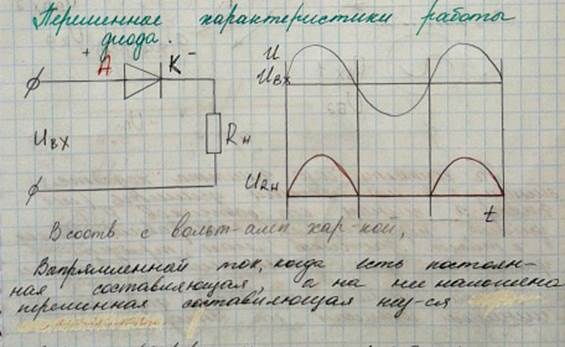 Переменные характеристики работы
диода.
+ А К -
U
Uвх
Uвх
Rн
URн
t
В соотв. с вольт-амп хар-кой,
Выпрямленный ток, когда есть постоян-
ная составляющая, а на не наложена
переменная составляющая наз-ся